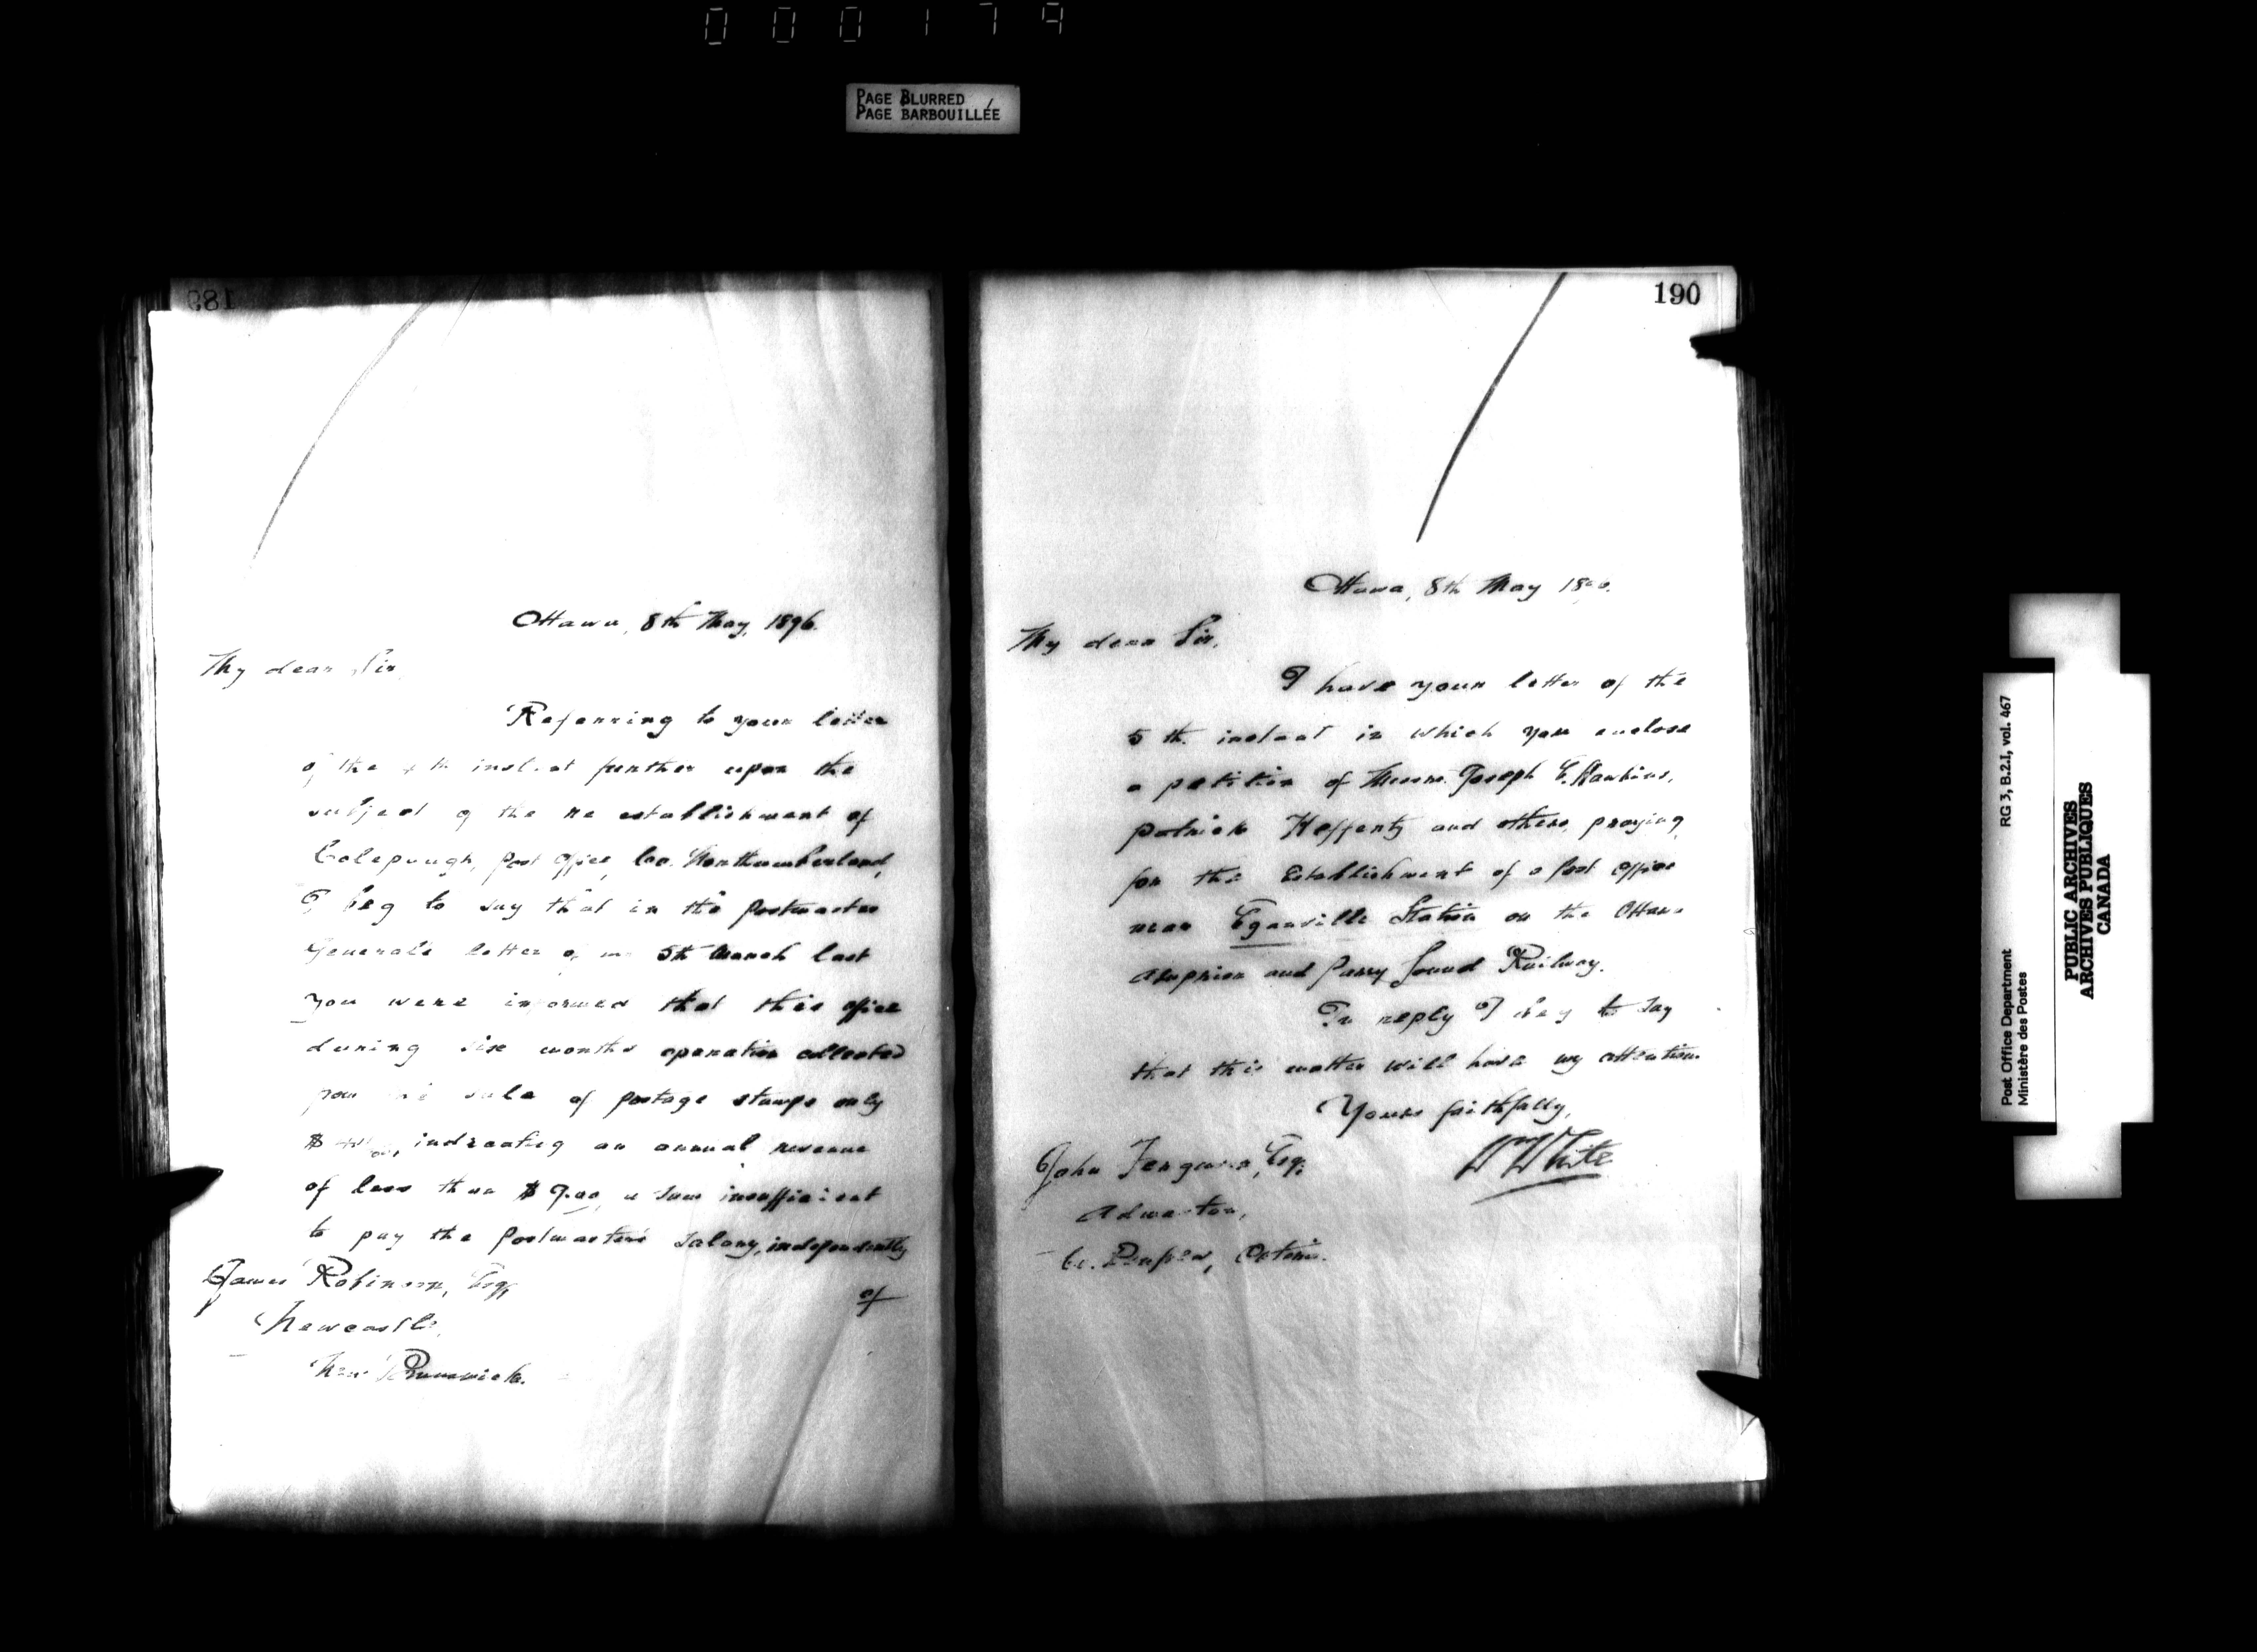 000179
PAGE BLURRED
PAGE BARBOUILLÉE
189
Ottawa, 8th May, 1896.
My dear Sir,
Referring to your letter
of the th instant further upon the
subject of the re establishment of
Post Office, Co. Northumberland,
I beg to say that in the Postmaster
General's letter of the 5th March last
you were informed that this office
during six months operation collected
from the sale of postage stamps only
$ indicating an annual revenue
of less than $ a sum insufficient
to pay the Postmaster's salary, independently
of
James Robinson, Esq,
Newcastle,
New Brunswick.
190
Ottawa, 8th May
My dear Sir,
I have your letter of the
5th. instant in which you enclose
a petition of Messrs. Joseph E. Hawkins,
Patrick Hefferty and others, praying
for the Establishment of a Post Office
near Eganville Station on the Ottawa
Arnprior and Parry Sound Railway.
In reply I beg to say
that this matter will have my attention.
Yours faithfully,
W White
John Ferguson, Esq.
Admaston,
Co. Renfrew, Ontario.
Post Office Department RG 3, B.2.I, vol. 467
Ministère des Postes
PUBLIC ARCHIVES
ARCHIVES PUBLIQUES
CANADA